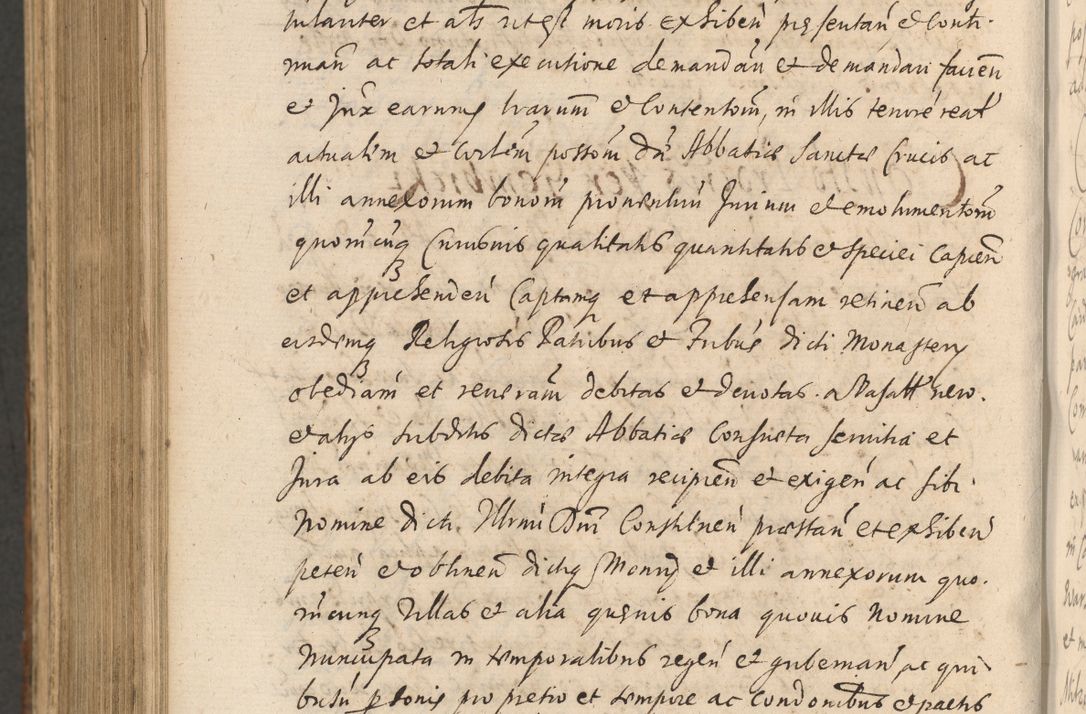 et ats ut est moris exhiben presentan et Conti-
nuan ac totali executione demandan et demandari facien
et Jux earumq lrarum et Contentom, in illis tenore reat
actualem et Corlem possom dn Abbatiæ Sanctæ Crucis ac
illi annexorum bonom proventuu Jurium et emolumentom
quomcunq Cujusvis qualitatis quantitatis et speciei Capien
et apprehenden Captamq et apprehensam retinen ab
eisdemq Religiosis Patribus et Fribus dicti Monastery
obediam et reveram debitas et devotas. a Vasall nero.
et alys subditis dictæ Abbatiæ Consueta servitia et
Jura ab eis debita integra recipien et exigen ac sibi
Nomine dicti Illrmi Dni Constituen præstan et exhiberi
peten et obtinen dictiq Monry et illi annexorum quo-
rumcunq Villas et alia quævis bona quovis Nomine
Nuncupata in temporalibus regen et gubernan ac qui-
busvis personis pro pretio et tempore ac Condonibus et pactis